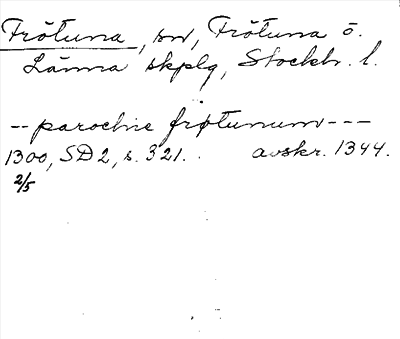 Frötuna, sn, Frötuna ö.
Länna skplg, Stockh. l.
-- parochie frøtunum ---
1300, SD 2, s. 321. avskr. 1344.
2/5